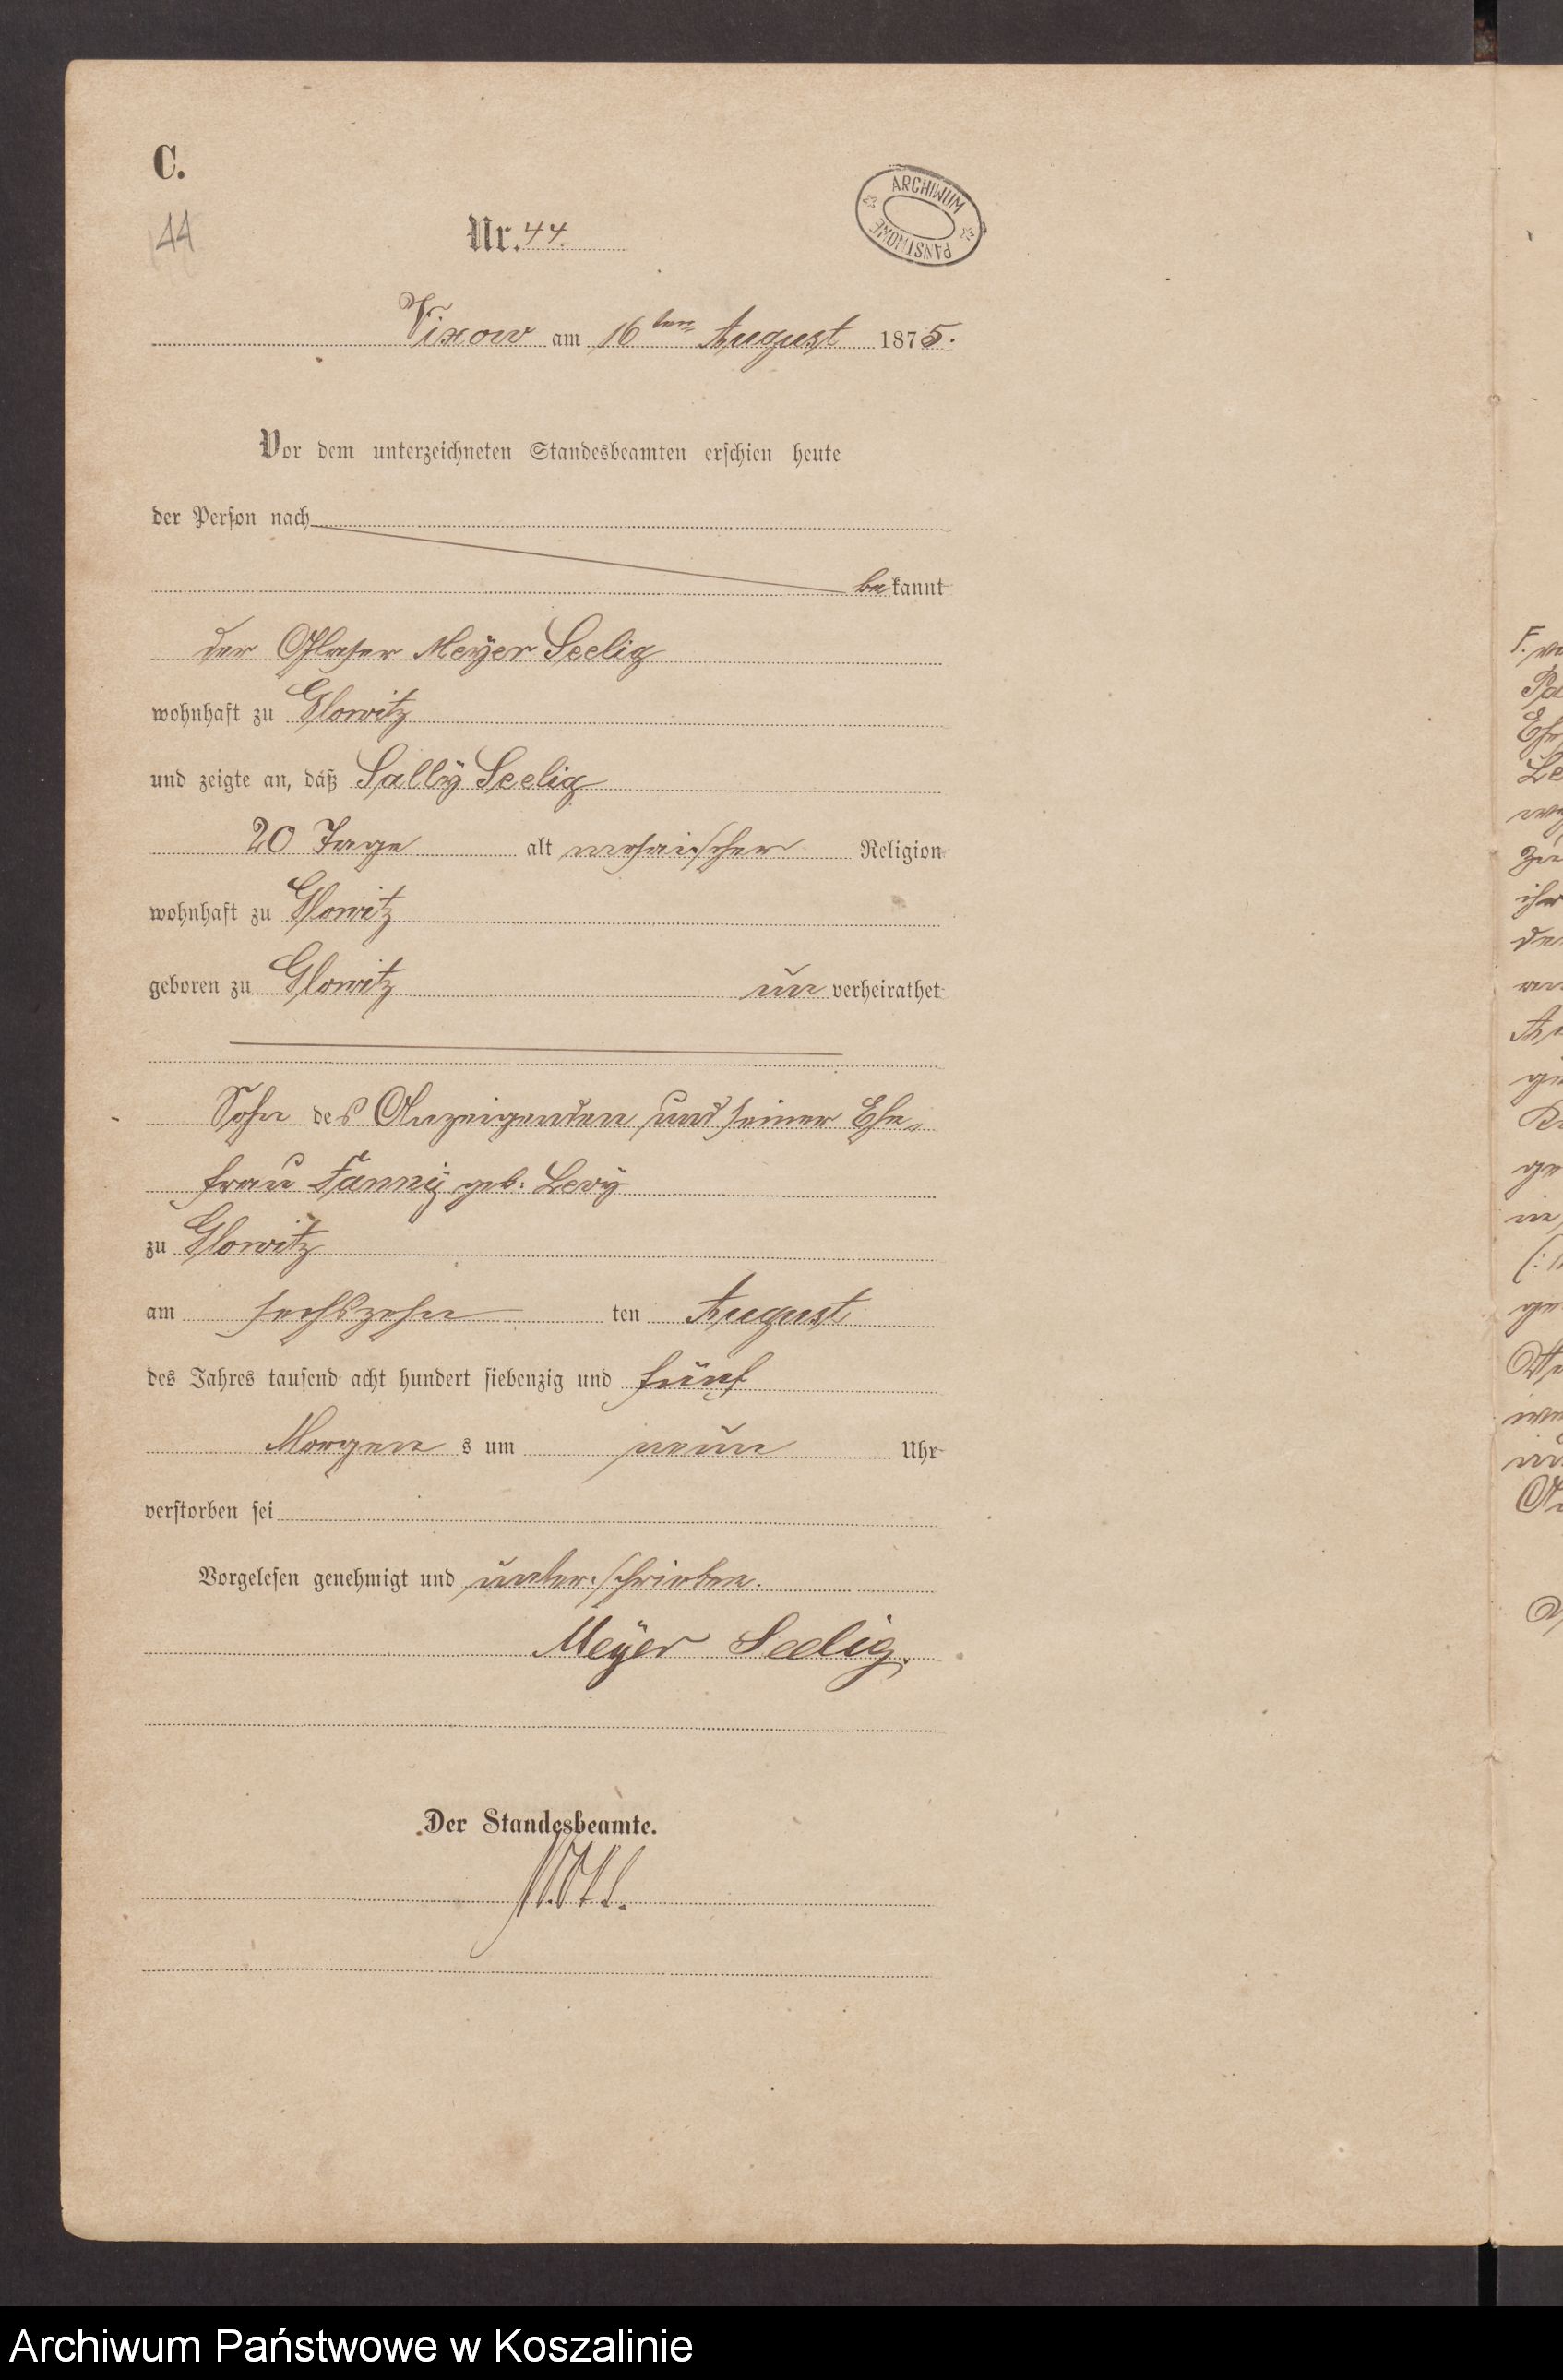 C.
44
Nr. 44.
ARCHIWUM PAŃSTWOWE
Vixow am 16ten August 1875.
Vor dem unterzeichneten Standesbeamten erschien heute
der Person nach
bekannt
der Glaser Meyer Seelig
wohnhaft zu Glowitz
und zeigte an, daß Sally Seelig
20 Tage alt mosaischer Religion
wohnhaft zu Glowitz
geboren zu Glowitz unverheirathet
Sohn des Anzeigenden und seiner Ehe-
frau Fanny geb. Levy
zu Glowitz
am sechszehn ten August
des Jahres tausend acht hundert siebenzig und fünf
Morgens um neun Uhr
verstorben sei
Vorgelesen genehmigt und unterschrieben.
Meyer Seelig.
Der Standesbeamte.
Archiwum Państwowe w Koszalinie